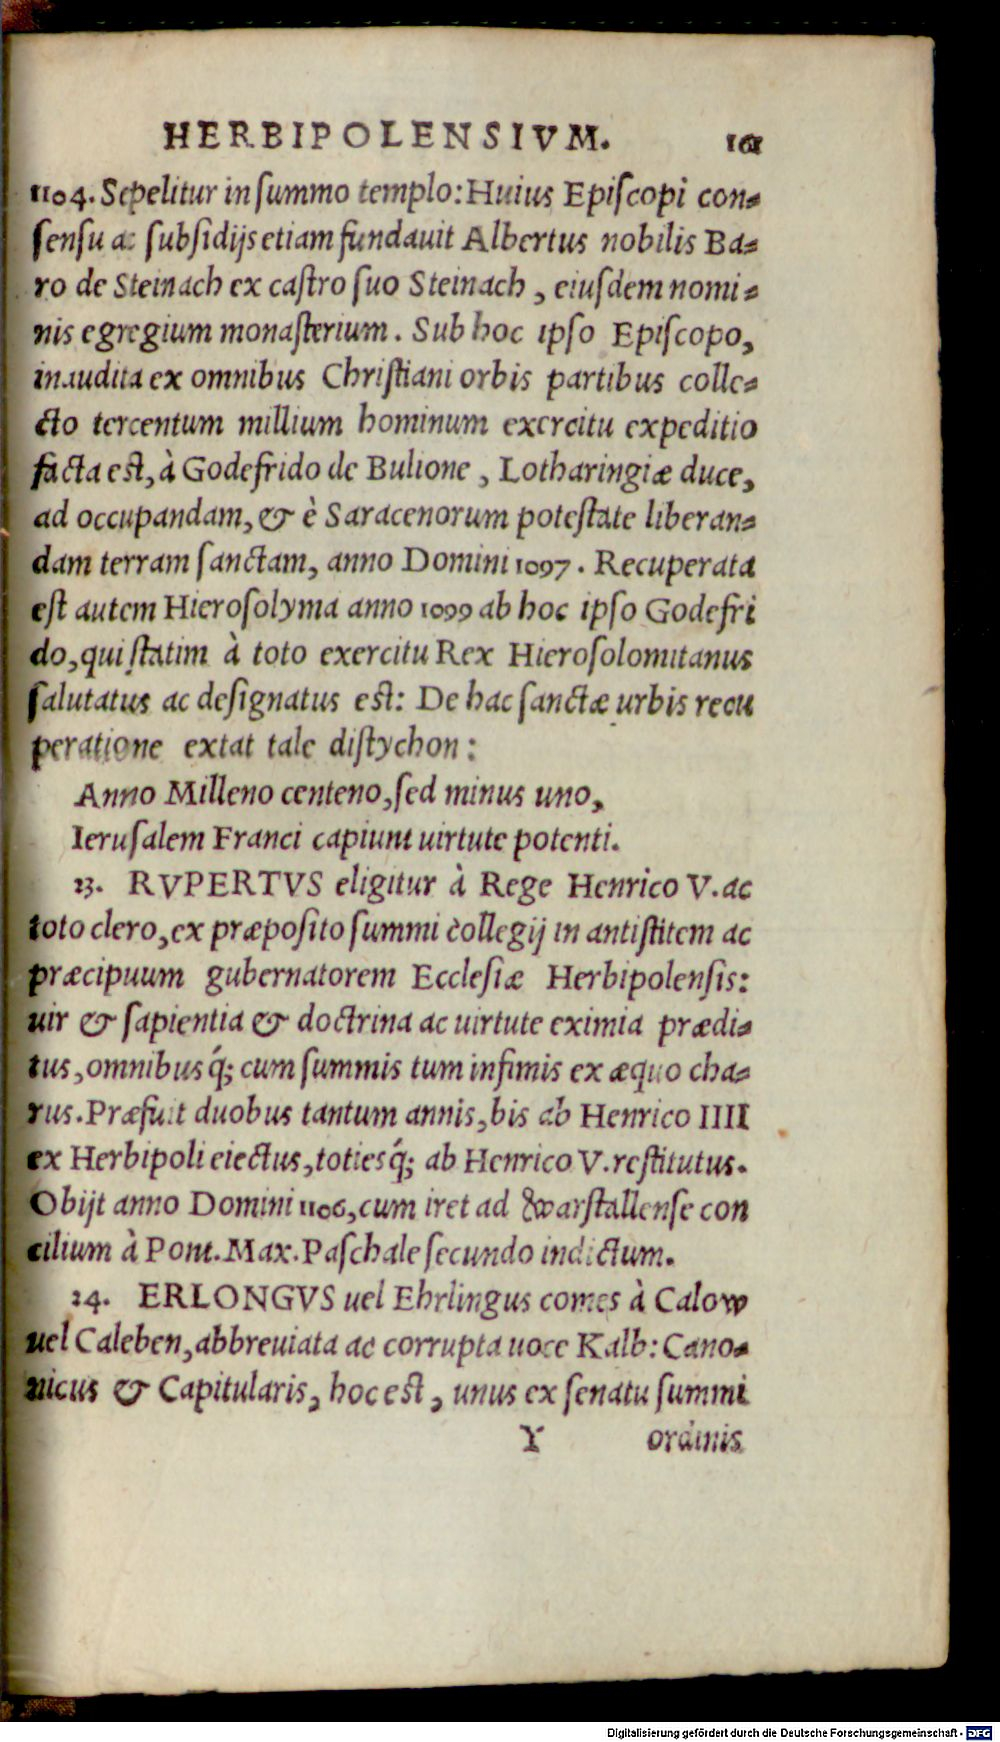 HERBIPOLENSIVM. 161
1104. Sepelitur in ſummo templo: Huius Epiſcopi con-
ſenſu ac ſubſidijs etiam fundauit Albertus nobilis Ba-
ro de Steinach ex caſtro ſuo Steinach, eiuſdem nomi-
nis egregium monaſterium. Sub hoc ipſo Epiſcopo,
inaudita ex omnibus Chriſtiani orbis partibus colle-
cto tercentum millium hominum exercitu expeditio
facta eſt, à Godefrido de Bulione, Lotharingiæ duce,
ad occupandam, & è Saracenorum poteſtate liberan-
dam terram ſanctam, anno Domini 1097. Recuperata
eſt autem Hieroſolyma anno 1099 ab hoc ipſo Godefri
do, qui ſtatim à toto exercitu Rex Hieroſolomitanus
ſalutatus ac deſignatus eſt: De hac ſanctæ urbis recu
peratione extat tale diſtychon:
Anno Milleno centeno, ſed minus uno,
Ieruſalem Franci capiunt uirtute potenti.
23. RVPERTVS eligitur à Rege Henrico V. ac
toto clero, ex præpoſito ſummi collegij in antiſtitem ac
præcipuum gubernatorem Eccleſiæ Herbipolenſis:
uir & ſapientia & doctrina ac uirtute eximia prædi-
tus, omnibusq́; cum ſummis tum infimis ex æquo cha-
rus. Præfuit duobus tantum annis, bis ab Henrico IIII
ex Herbipoli eiectus, totiesq́; ab Henrico V. reſtitutus.
Obijt anno Domini 1106, cum iret ad Gwarſtallenſe con
cilium à Pont. Max. Paſchale ſecundo indictum.
24. ERLONGVS uel Ehrlingus comes à Calow
uel Caleben, abbreuiata ac corrupta uoce Kalb: Cano-
nicus & Capitularis, hoc eſt, unus ex ſenatu ſummi
Y ordinis
Digitalisierung gefördert durch die Deutsche Forschungsgemeinschaft - DFG